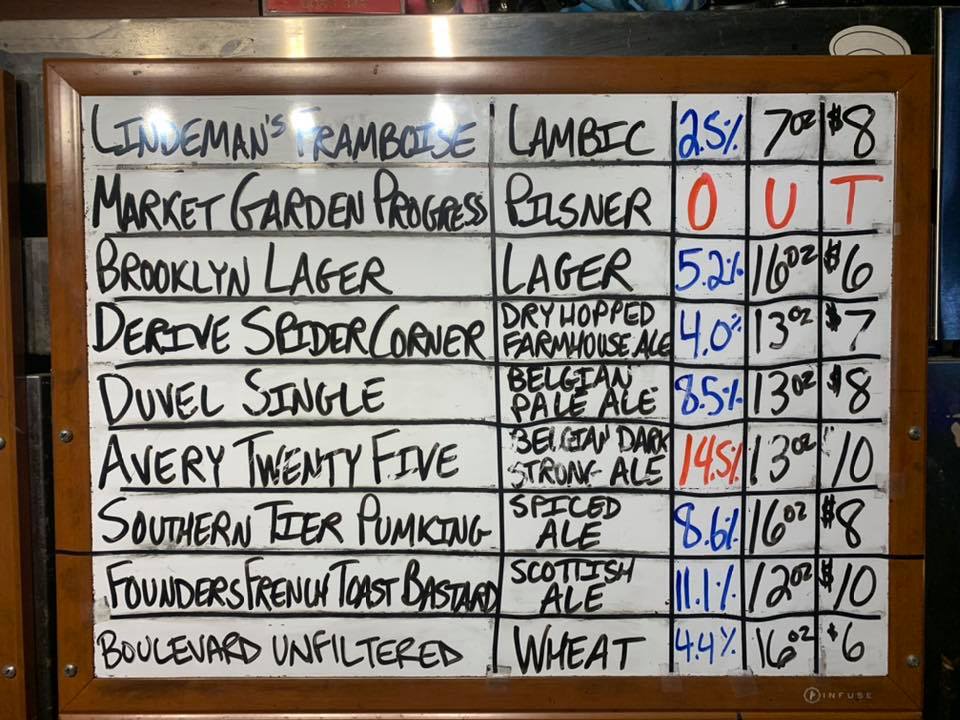 LINDEMAN'S FRAMBOISE LAMBIC 2.5% 7oz $8
MARKET GARDEN PROGRESS PILSNER OUT
BROOKLYN LAGER LAGER 5.2% 16oz $6
DERIVE SPIDER CORNER DRY HOPPED FARMHOUSE ALE 4.0% 13oz $7
DUVEL SINGLE BELGIAN PALE ALE 8.5% 13oz $8
AVERY TWENTY FIVE BELGIAN DARK STRONG ALE 14.5% 13oz $10
SOUTHERN TIER PUMKING SPICED ALE 8.6% 16oz $8
FOUNDERS FRENCH TOAST BASTARD SCOTTISH ALE 11.1% 12oz $10
BOULEVARD UNFILTERED WHEAT 4.4% 16oz $6
INFUSE